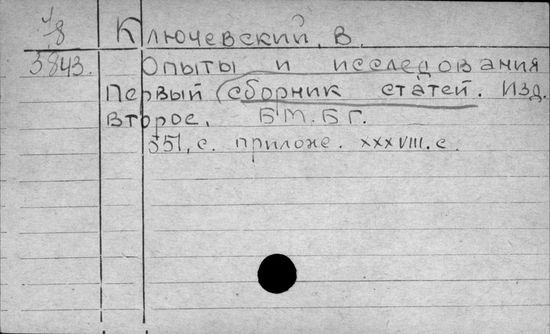 1/8 Ключевский, В.
3843. Опыты и исследования
Первый (сборник статей. Изд.
второе. Б.М.Б.Г.
551, с. приложе. XXXVIII. с.